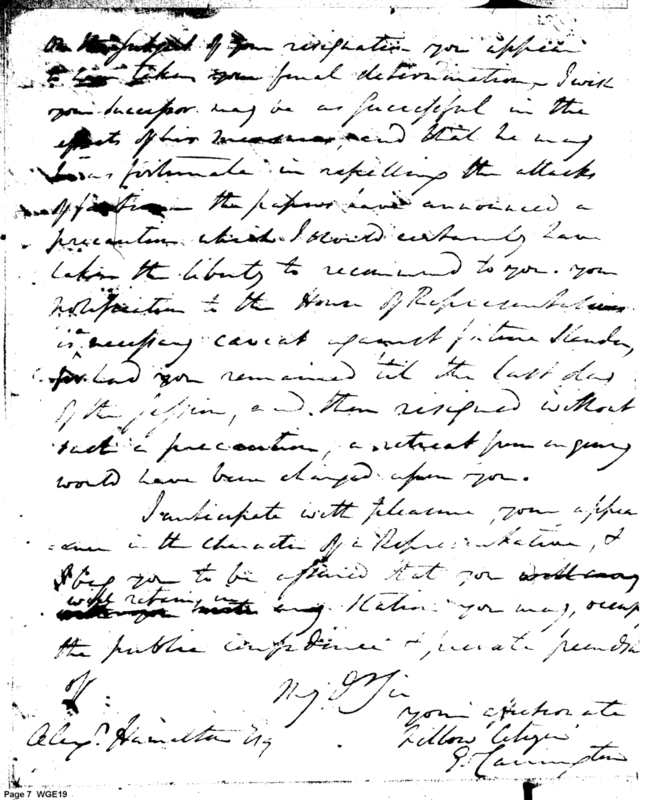 On the subject of your resignation you appear
to have taken your final determination, I wish
your Successor may be as successful in the
effects of his measures, and that he may
be as fortunate in repelling the attacks
of faction the papers have announced a
precaution which I should certainly have
taken the liberty to recommend to you. your
notification to the House of Representatives
is a necessary caveat against future Slander,
for had you remained 'til the last day
of the session, and then resigned without
such a precaution, a retreat from enquiry
would have been charged upon you.
I anticipate with pleasure, your appear
ance in the character of a Representative, &
beg you to be assured that you
will retain, in any Station you may, occupy
the public confidence & private friendship
of
My Dr Sir
your affectionate
Fellow Citizen
Alexr. Hamilton Esq
E. Carrington
Page 7 WGE19